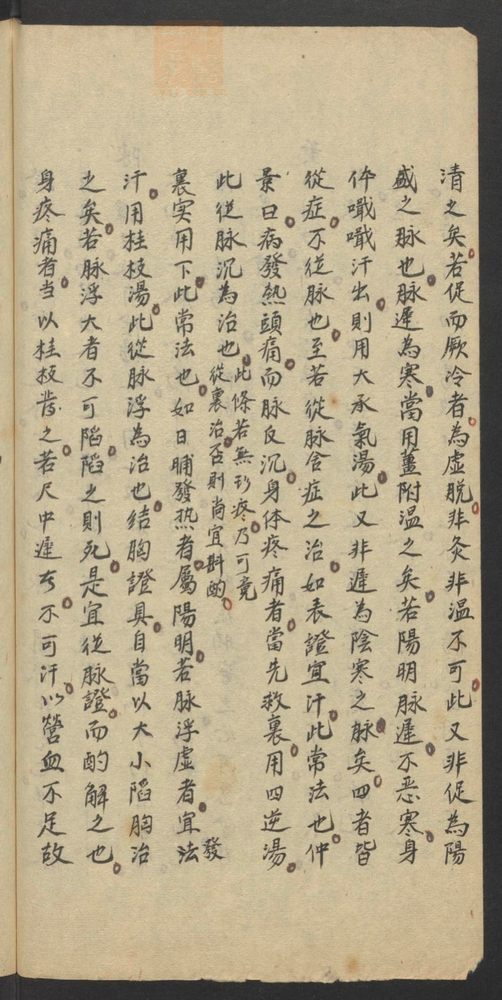 清之矣若促而厥冷者為虛脫非灸非温不可此又非促為陽
盛之脉也脉遲為寒當用薑附温之矣若陽明脉遲不惡寒身
体濈濈汗出則用大承氣湯此又非遲為陰寒之脉矣四者皆
從症不從脉也至若從脉舍症之治如表證宜汗此常法也仲
景曰病發熱頭痛而脉反沉身体疼痛者當先救裏用四逆湯
此從脉沉為治也此條若無 疼乃可竟從裏治否則尚宜斟酌
裏实用下此常法也如日晡發热者屬陽明若脉浮虛者宜發法
汗用桂枝湯此從脉浮為治也結胸證具自當以大小陷胸治
之矣若脉浮大者不可陷陷之則死是宜從脉證而酌解之也
身疼痛者当以桂枝 之若尺中遲者不可汗以營血不足故